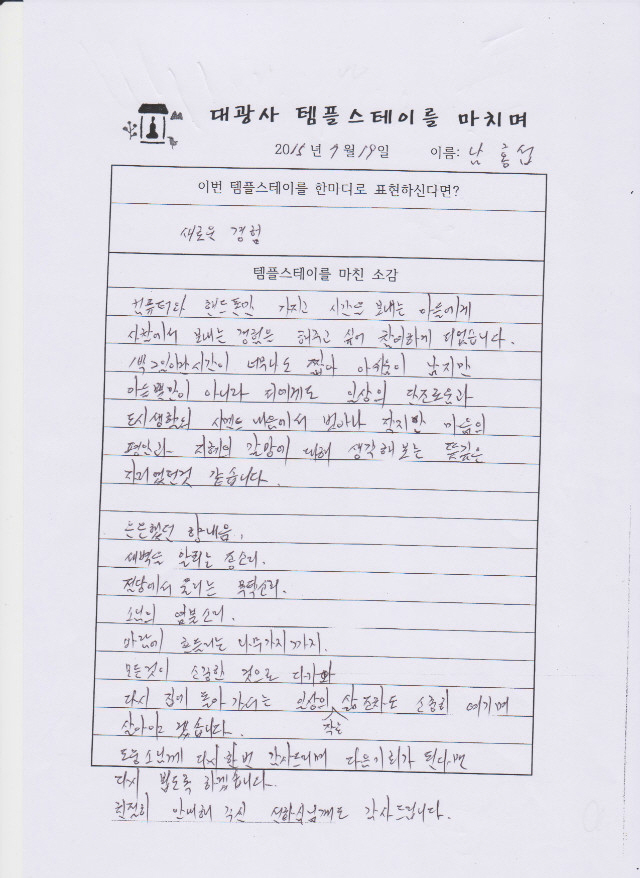 대광사 템플스테이를 마치며
2015년 9월 19일 이름: 남홍섭
이번 템플스테이를 한마디로 표현하신다면?
새로운 경험
템플스테이를 마친 소감
컴퓨터와 핸드폰만 가지고 시간을 보내는 아들에게
사찰에서 보내는 경험을 해주고 싶어 참여하게 되었습니다.
1박2일이란 시간이 너무나도 짧다 아쉬움이 남지만
아들뿐만이 아니라 저에게도 일상의 단조로움과
도시생활의 내음에서 벗어나 마음의
평안과 지혜의 갈망에 대해 생각해보는 뜻깊은
자리였던것 같습니다.
은은했던 향내음,
새벽을 알리는 종소리.
전당에서 울리는 목탁소리.
스님의 염불소리.
바람에 흔들리는 나무가지까지.
모든것이 소중한 것으로 다가와
다시 집에 돌아가서는 일상의 작은 삶조차도 소중히 여기며
살아야 겠습니다.
스님께 다시한번 감사드리며 다음기회가 된다면
다시 뵙도록 하겠습니다.
친절히 안내해 주신 님께도 감사드립니다.